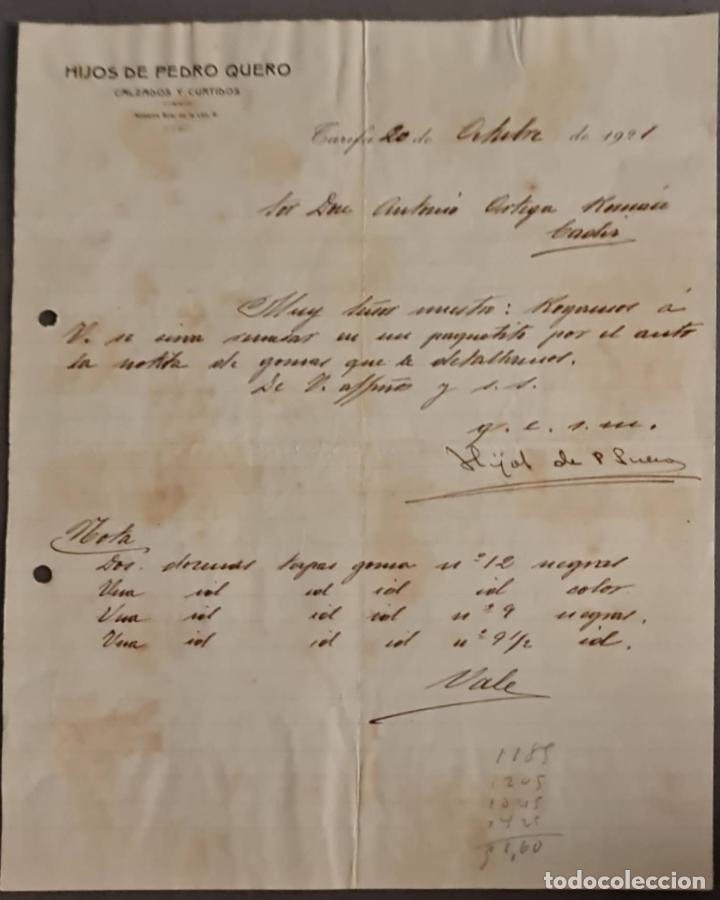 HIJOS DE PEDRO QUERO
CALZADOS Y CURTIDOS
Tarifa 20 de Octubre de 1921
Sor Don Antonio Ortega Román
Cadiz
Muy Señor nuestro: Rogamos á
V. se sirva remesar en un paquetito por el auto
la notita de gomas que le detallamos.
De V. affmos y s.s.
q. e. s. m.
Hijos de P Quero
Nota
Dos docenas tapas goma nº 12 negras
Una id id id id color
Una id id id nº 9 negras.
Una id id id nº 9 1/2 id.
Vale
1185
1205
1045
todocoleccion